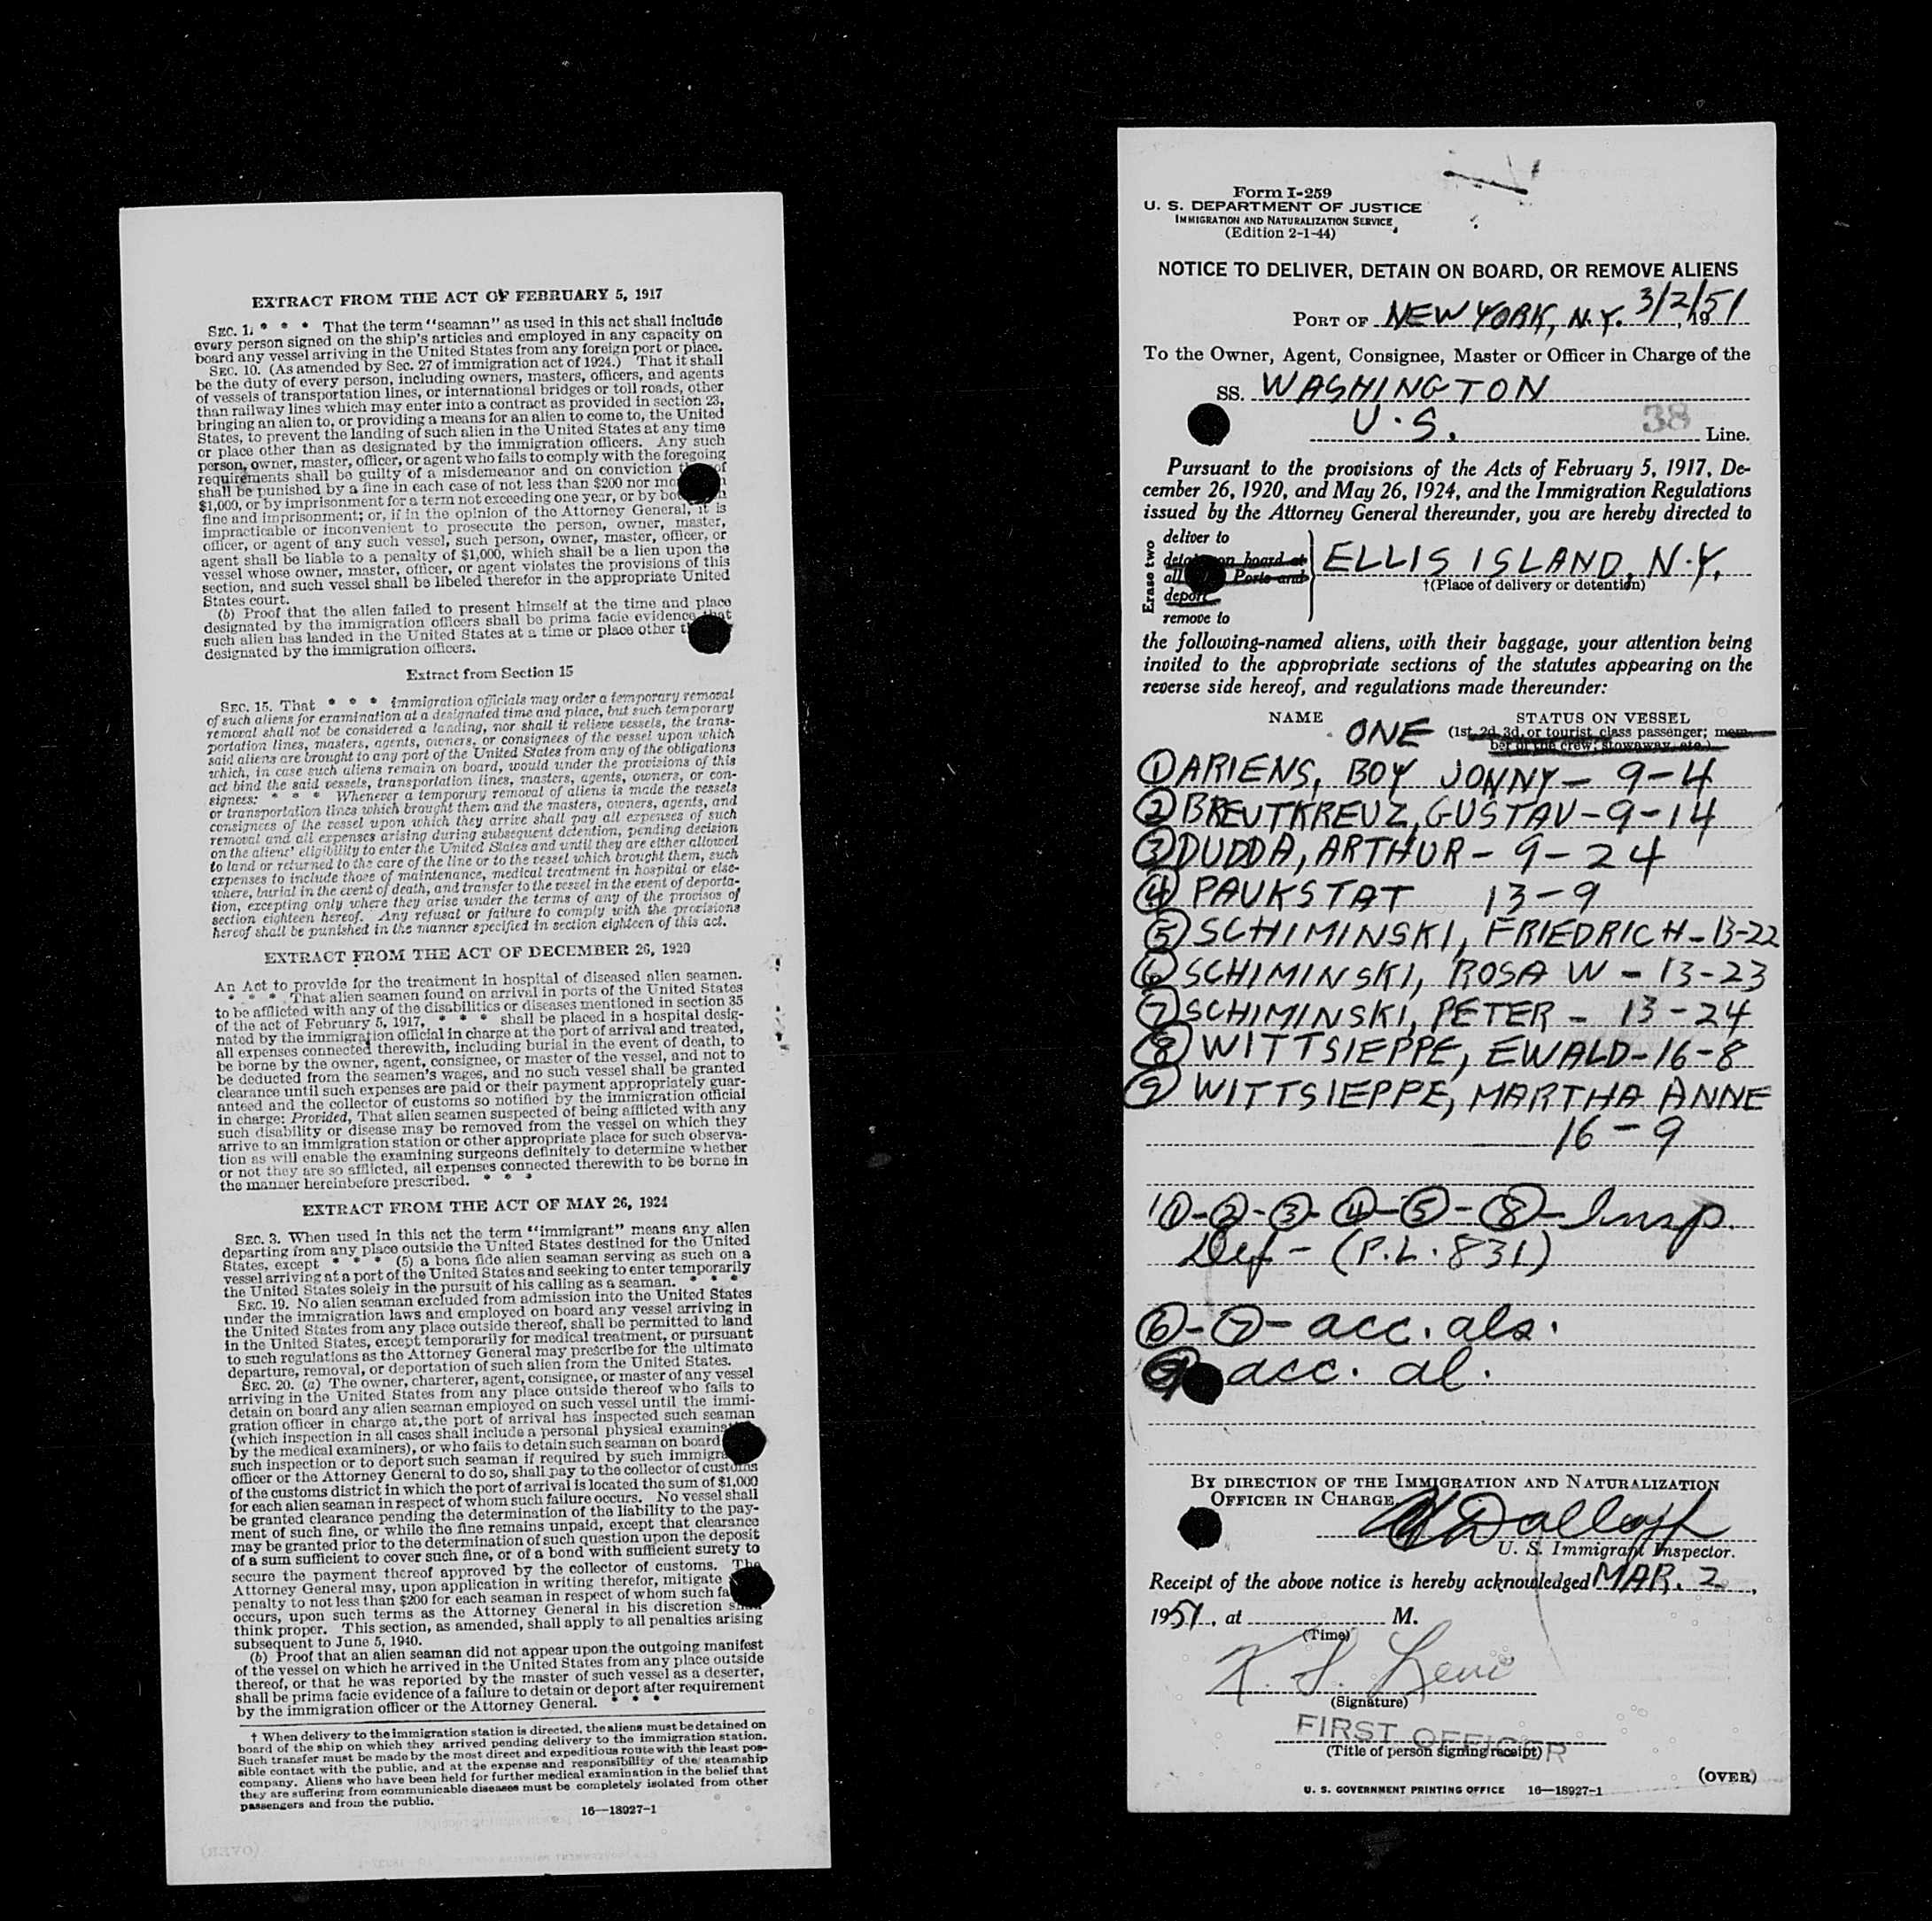 EXTRACT FROM THE ACT OF FEBRUARY 5, 1917
SEC. 1. * * * That the term "seaman" as used in this act shall include
every person signed on the ship's articles and employed in any capacity on
board any vessel arriving in the United States from any foreign port or place.
SEC. 10. (As amended by Sec. 27 of immigration act of 1924.) That it shall
be the duty of every person, including owners, masters, officers, and agents
of vessels of transportation lines, or international bridges or toll roads, other
than railway lines which may enter into a contract as provided in section 23,
bringing an alien to, or providing a means for an alien to come to, the United
States, to prevent the landing of such alien in the United States at any time
or place other than as designated by the immigration officers. Any such
person, owner, master, officer, or agent who fails to comply with the foregoing
requirements shall be guilty of a misdemeanor and on conviction
shall be punished by a fine in each case of not less than $200 nor
$1,000, or by imprisonment for a term not exceeding one year, or by
fine and imprisonment; or, if in the opinion of the Attorney General, it is
impracticable or inconvenient to prosecute the person, owner, master,
officer, or agent of any such vessel, such person, owner, master, officer, or
agent shall be liable to a penalty of $1,000, which shall be a lien upon the
vessel whose owner, master, officer, or agent violates the provisions of this
section, and such vessel shall be libeled therefor in the appropriate United
States court.
(b) Proof that the alien failed to present himself at the time and place
designated by the immigration officers shall be prima facie evidence that
such alien has landed in the United States at a time or place other
designated by the immigration officers.
Extract from Section 15
SEC. 15. That * * * immigration officials may order a temporary removal
of such aliens for examination at a designated time and place, but such temporary
removal shall not be considered a landing, nor shall it relieve vessels, the trans-
portation lines, masters, agents, owners, or consignees of the vessel upon which
said aliens are brought to any port of the United States from any of the obligations
which, in case such aliens remain on board, would under the provisions of this
act bind the said vessels, transportation lines, masters, agents, owners, or con-
signees: * * * Whenever a temporary removal of aliens is made the vessels
or transportation lines which brought them and the masters, owners, agents, and
consignees of the vessel upon which they arrive shall pay all expenses of such
removal and all expenses arising during subsequent detention, pending decision
on the aliens' eligibility to enter the United States and until they are either allowed
to land or returned to the care of the line or to the vessel which brought them, such
expenses to include those of maintenance, medical treatment in hospital or else-
where, burial in the event of death, and transfer to the vessel in the event of deporta-
tion, excepting only where they arise under the terms of any of the provisos of
section eighteen hereof. Any refusal or failure to comply with the provisions
hereof shall be punished in the manner specified in section eighteen of this act.
EXTRACT FROM THE ACT OF DECEMBER 26, 1920
An Act to provide for the treatment in hospital of diseased alien seamen.
* * * That alien seamen found on arrival in ports of the United States
to be afflicted with any of the disabilities or diseases mentioned in section 35
of the act of February 5, 1917, * * * shall be placed in a hospital desig-
nated by the immigration official in charge at the port of arrival and treated,
all expenses connected therewith, including burial in the event of death, to
be borne by the owner, agent, consignee, or master of the vessel, and not to
be deducted from the seamen's wages, and no such vessel shall be granted
clearance until such expenses are paid or their payment appropriately guar-
anteed and the collector of customs so notified by the immigration official
in charge: Provided, That alien seamen suspected of being afflicted with any
such disability or disease may be removed from the vessel on which they
arrive to an immigration station or other appropriate place for such observa-
tion as will enable the examining surgeons definitely to determine whether
or not they are so afflicted, all expenses connected therewith to be borne in
the manner hereinbefore prescribed. * * *
EXTRACT FROM THE ACT OF MAY 26, 1924
SEC. 3. When used in this act the term "immigrant" means any alien
departing from any place outside the United States destined for the United
States, except * * * (5) a bona fide alien seaman serving as such on a
vessel arriving at a port of the United States and seeking to enter temporarily
the United States solely in the pursuit of his calling as a seaman. * * *
SEC. 19. No alien seaman excluded from admission into the United States
under the immigration laws and employed on board any vessel arriving in
the United States from any place outside thereof, shall be permitted to land
in the United States, except temporarily for medical treatment, or pursuant
to such regulations as the Attorney General may prescribe for the ultimate
departure, removal, or deportation of such alien from the United States.
SEC. 20. (a) The owner, charterer, agent, consignee, or master of any vessel
arriving in the United States from any place outside thereof who fails to
detain on board any alien seaman employed on such vessel until the immi-
gration officer in charge at the port of arrival has inspected such seaman
(which inspection in all cases shall include a personal physical
by the medical examiners), or who fails to detain such seaman on board
such inspection or to deport such seaman if required by such
officer or the Attorney General to do so, shall pay to the collector of customs
of the customs district in which the port of arrival is located the sum of $1,000
for each alien seaman in respect of whom such failure occurs. No vessel shall
be granted clearance pending the determination of the liability to the pay-
ment of such fine, or while the fine remains unpaid, except that clearance
may be granted prior to the determination of such question upon the deposit
of a sum sufficient to cover such fine, or of a bond with sufficient surety to
secure the payment thereof approved by the collector of customs. The
Attorney General may, upon application in writing therefor, mitigate
penalty to not less than $200 for each seaman in respect of whom such
occurs, upon such terms as the Attorney General in his discretion shall
think proper. This section, as amended, shall apply to all penalties arising
subsequent to June 5, 1940.
(b) Proof that an alien seaman did not appear upon the outgoing manifest
of the vessel on which he arrived in the United States from any place outside
thereof, or that he was reported by the master of such vessel as a deserter,
shall be prima facie evidence of a failure to detain or deport after requirement
by the immigration officer or the Attorney General. * * *
† When delivery to the immigration station is directed, the aliens must be detained on
board of the ship on which they arrived pending delivery to the immigration station.
Such transfer must be made by the most direct and expeditious route with the least pos-
sible contact with the public, and at the expense and responsibility of the steamship
company. Aliens who have been held for further medical examination in the belief that
they are suffering from communicable diseases must be completely isolated from other
passengers and from the public.
16—18927-1
Form I-259
U. S. DEPARTMENT OF JUSTICE
IMMIGRATION AND NATURALIZATION SERVICE
(Edition 2-1-44)
NOTICE TO DELIVER, DETAIN ON BOARD, OR REMOVE ALIENS
PORT OF NEW YORK, N.Y. 3/2/51, 19
To the Owner, Agent, Consignee, Master or Officer in Charge of the
SS. WASHINGTON
U.S. 38 Line.
Pursuant to the provisions of the Acts of February 5, 1917, De-
cember 26, 1920, and May 26, 1924, and the Immigration Regulations
issued by the Attorney General thereunder, you are hereby directed to
Erase two
deliver to
on board at
all Ports and
deport
remove to
ELLIS ISLAND, N.Y.
†(Place of delivery or detention)
the following-named aliens, with their baggage, your attention being
invited to the appropriate sections of the statutes appearing on the
reverse side hereof, and regulations made thereunder:
NAME STATUS ON VESSEL
ONE (1st, 2d, 3d, or tourist class passenger; mem-
ber of the crew; stowaway, etc.)
① ARIENS, BOY JONNY - 9-4
② BREUTKREUZ, GUSTAV - 9-14
③ DUDDA, ARTHUR - 9-24
④ PAUKSTAT 13-9
⑤ SCHIMINSKI, FRIEDRICH - 13-22
⑥ SCHIMINSKI, ROSA W - 13-23
⑦ SCHIMINSKI, PETER - 13-24
⑧ WITTSIEPPE, EWALD - 16-8
⑨ WITTSIEPPE, MARTHA ANNE
16-9
①-②-③-④-⑤-⑧- Insp.
Def - (P.L. 831)
⑥-⑦- acc. als.
⑨ acc. al.
BY DIRECTION OF THE IMMIGRATION AND NATURALIZATION
OFFICER IN CHARGE.
U. S. Immigrant Inspector.
Receipt of the above notice is hereby acknowledged MAR. 2,
1951, at M.
(Time)
(Signature)
FIRST OFFICER
(Title of person signing receipt)
(OVER)
U. S. GOVERNMENT PRINTING OFFICE 16—18927-1